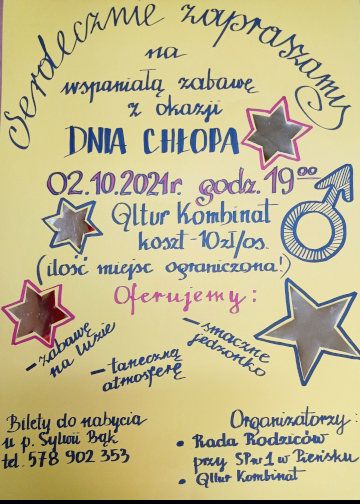 Serdecznie zapraszamy
na
wspaniałą zabawę
z okazji
DNIA CHŁOPA
02.10.2021r. godz. 19⁰⁰
Qltur Kombinat
koszt - 10zł/os.
(ilość miejsc ograniczona!)
Oferujemy:
- zabawę
na luzie
- taneczną
atmosferę
- smaczne
jedzonko
Bilety do nabycia
u p. Sylwii Bąk
tel. 578 902 353
Organizatorzy:
• Rada Rodziców
przy SP nr 1 w Pieńsku
• Qltur Kombinat